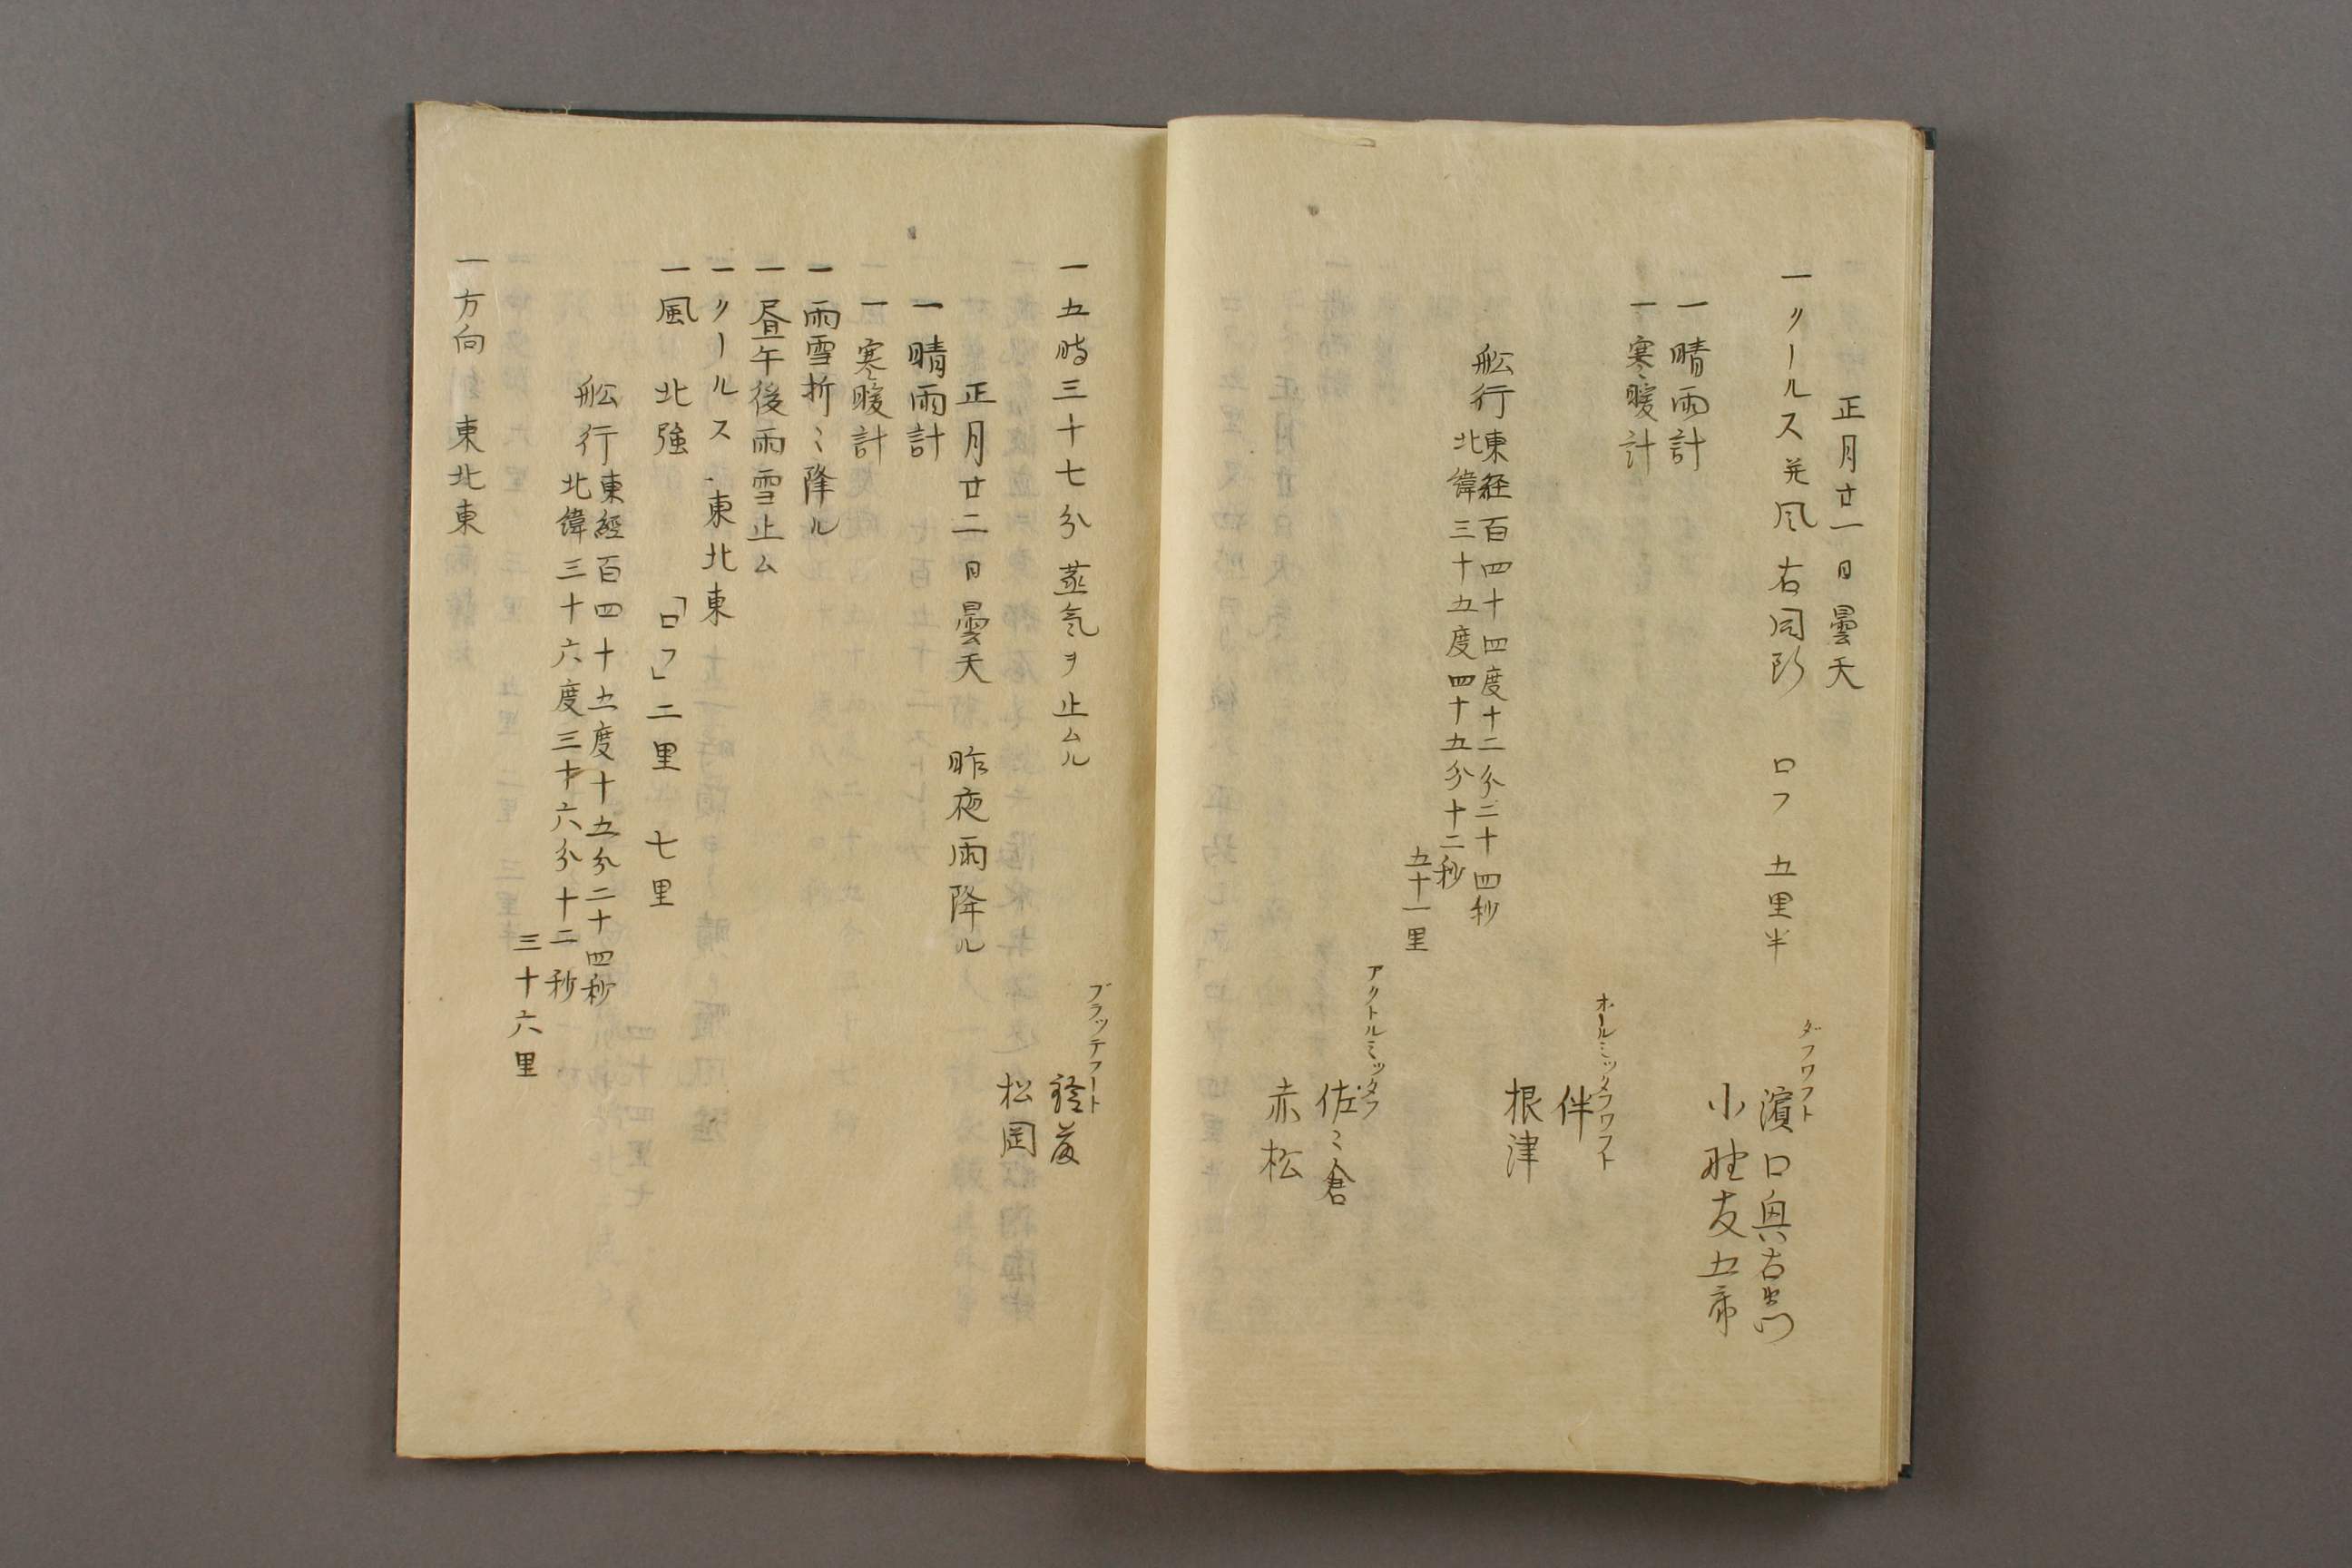 正月廿一日曇天
一クールス并風右同断 ロフ 五里半
ダフワフト
濱口與右衛門
小野友五郎
一晴雨計
一寒暖計
ホールミッタフワフト
伴
根津
舩行東経百四十四度十二分二十四秒
北緯三十五度四十五分十二秒
五十一里
アクトルミッタフ
佐々倉
赤松
一五時三十七分蒸気ヲ止ムル
ブラッテフート
鈴藤
松岡
正月廿二日曇天 昨夜雨降ル
一晴雨計
一寒暖計
一雨雪折々降ル
一昼午後雨雪止ム
一クールス 東北東
一風 北強 「ロフ」二里 七里
舩行東經百四十五度十五分二十四秒
北緯三十六度三十六分十二秒
三十六里
一方向 東北東